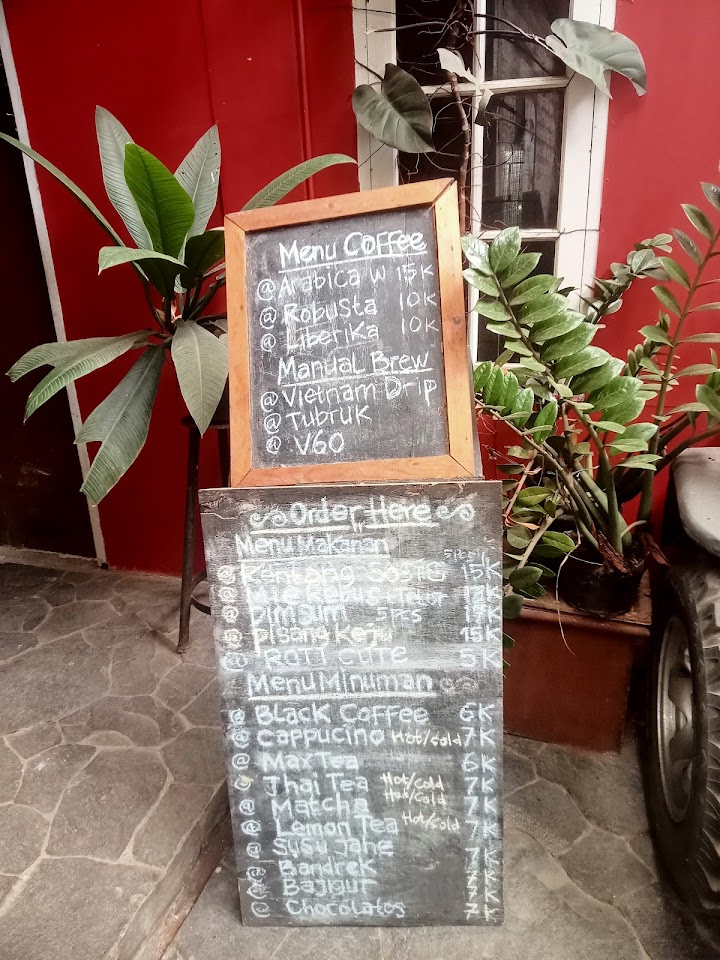 Menu Coffee
@ Arabica W 15K
@ Robusta 10K
@ Liberika 10K
Manual Brew
@ Vietnam Drip
@ Tubruk
@ V60
Order Here
Menu Makanan
@ Kentang Sosis 5 Pcs 15K
@ Mie Rebus + Telur
@ Dimsum 5 pcs
@ Pisang Keju 15K
@ Roti Cute 5K
Menu Minuman
@ Black Coffee 6K
@ Cappucino Hot/Cold 7K
@ Max Tea 6K
@ Thai Tea Hot/Cold 7K
@ Matcha Hot/Cold 7K
@ Lemon Tea Hot/Cold 7K
@ Susu Jahe 7K
@ Bandrek 7K
@ Bajigur 7K
@ Chocolatos 7K